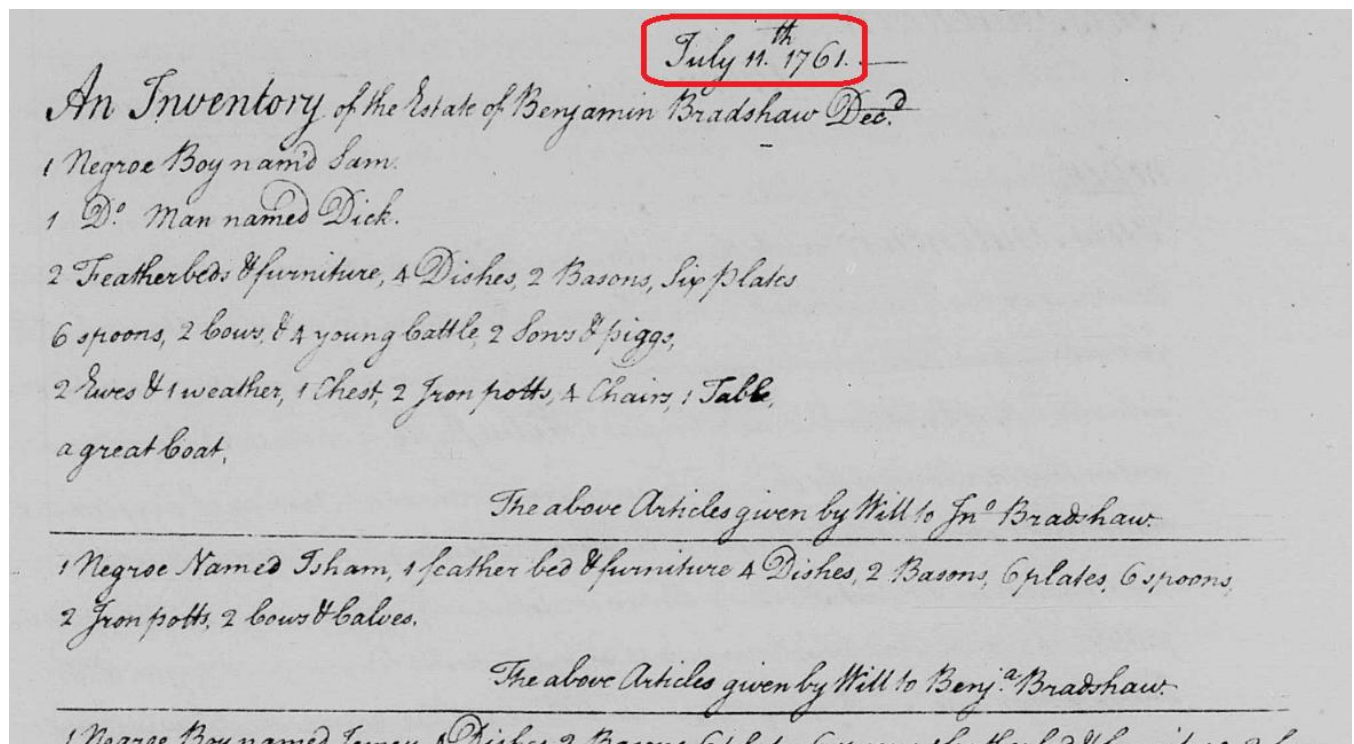 July 11.th 1761.
An Inventory of the Estate of Benjamin Bradshaw Dec.d
1 Negroe Boy nam'd Sam.
1 D.o Man named Dick.
2 Featherbeds & furniture, 4 Dishes, 2 Basons, Six plates
6 spoons, 2 Cows, & 4 young Cattle, 2 Sows & piggs,
2 Ewes & 1 weather, 1 Chest, 2 Iron potts, 4 Chairs, 1 Table,
a great Coat,
The above Articles given by Will to Jno Bradshaw.
1 Negroe Named Isham, 1 feather bed & furniture 4 Dishes, 2 Basons, 6 plates, 6 spoons,
2 Iron potts, 2 Cows & Calves.
The above Articles given by Will to Benj.a Bradshaw.
1 Negroe Boy named 4 Dishes 2 Basons 6 plates 6 spoons